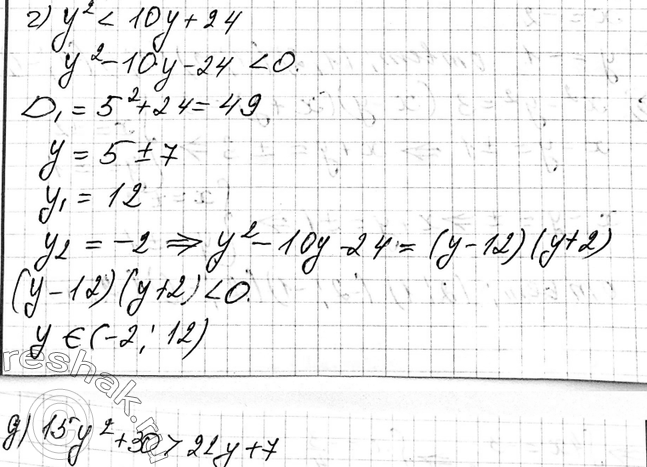 г) y² < 10y + 24
y² - 10y - 24 < 0.
D₁ = 5² + 24 = 49
y = 5 ± 7
y₁ = 12
y₂ = -2 ⇒ y² - 10y - 24 = (y - 12)(y + 2)
(y - 12)(y + 2) < 0.
y ∈ (-2; 12)
reshak.ru
д) 15y² + 30 > 22y + 7